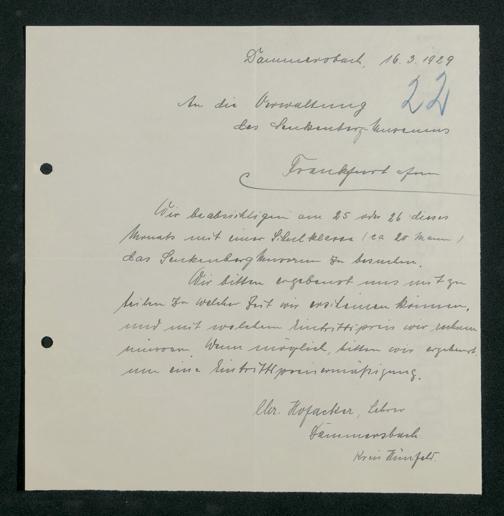 Dammersbach, 16.3.1929
22
An die Verwaltung
des Senkenberg-Museums
Frankfurt a/m
Wir beabsichtigen am 25 oder 26 dieses
Monats mit einer Schulklasse (ca 20 Mann)
das Senkenberg Museum zu besuchen.
Wir bitten ergebenst uns mit zu
teilen zu welcher Zeit wir erscheinen können,
und mit welchem Eintrittspreis wir rechnen
müssen. Wenn möglich, bitten wir ergebenst
um eine Eintrittspreisermäßigung.
Chr. Hofacker, Lehrer
Dammersbach
Kreis Hünfeld.